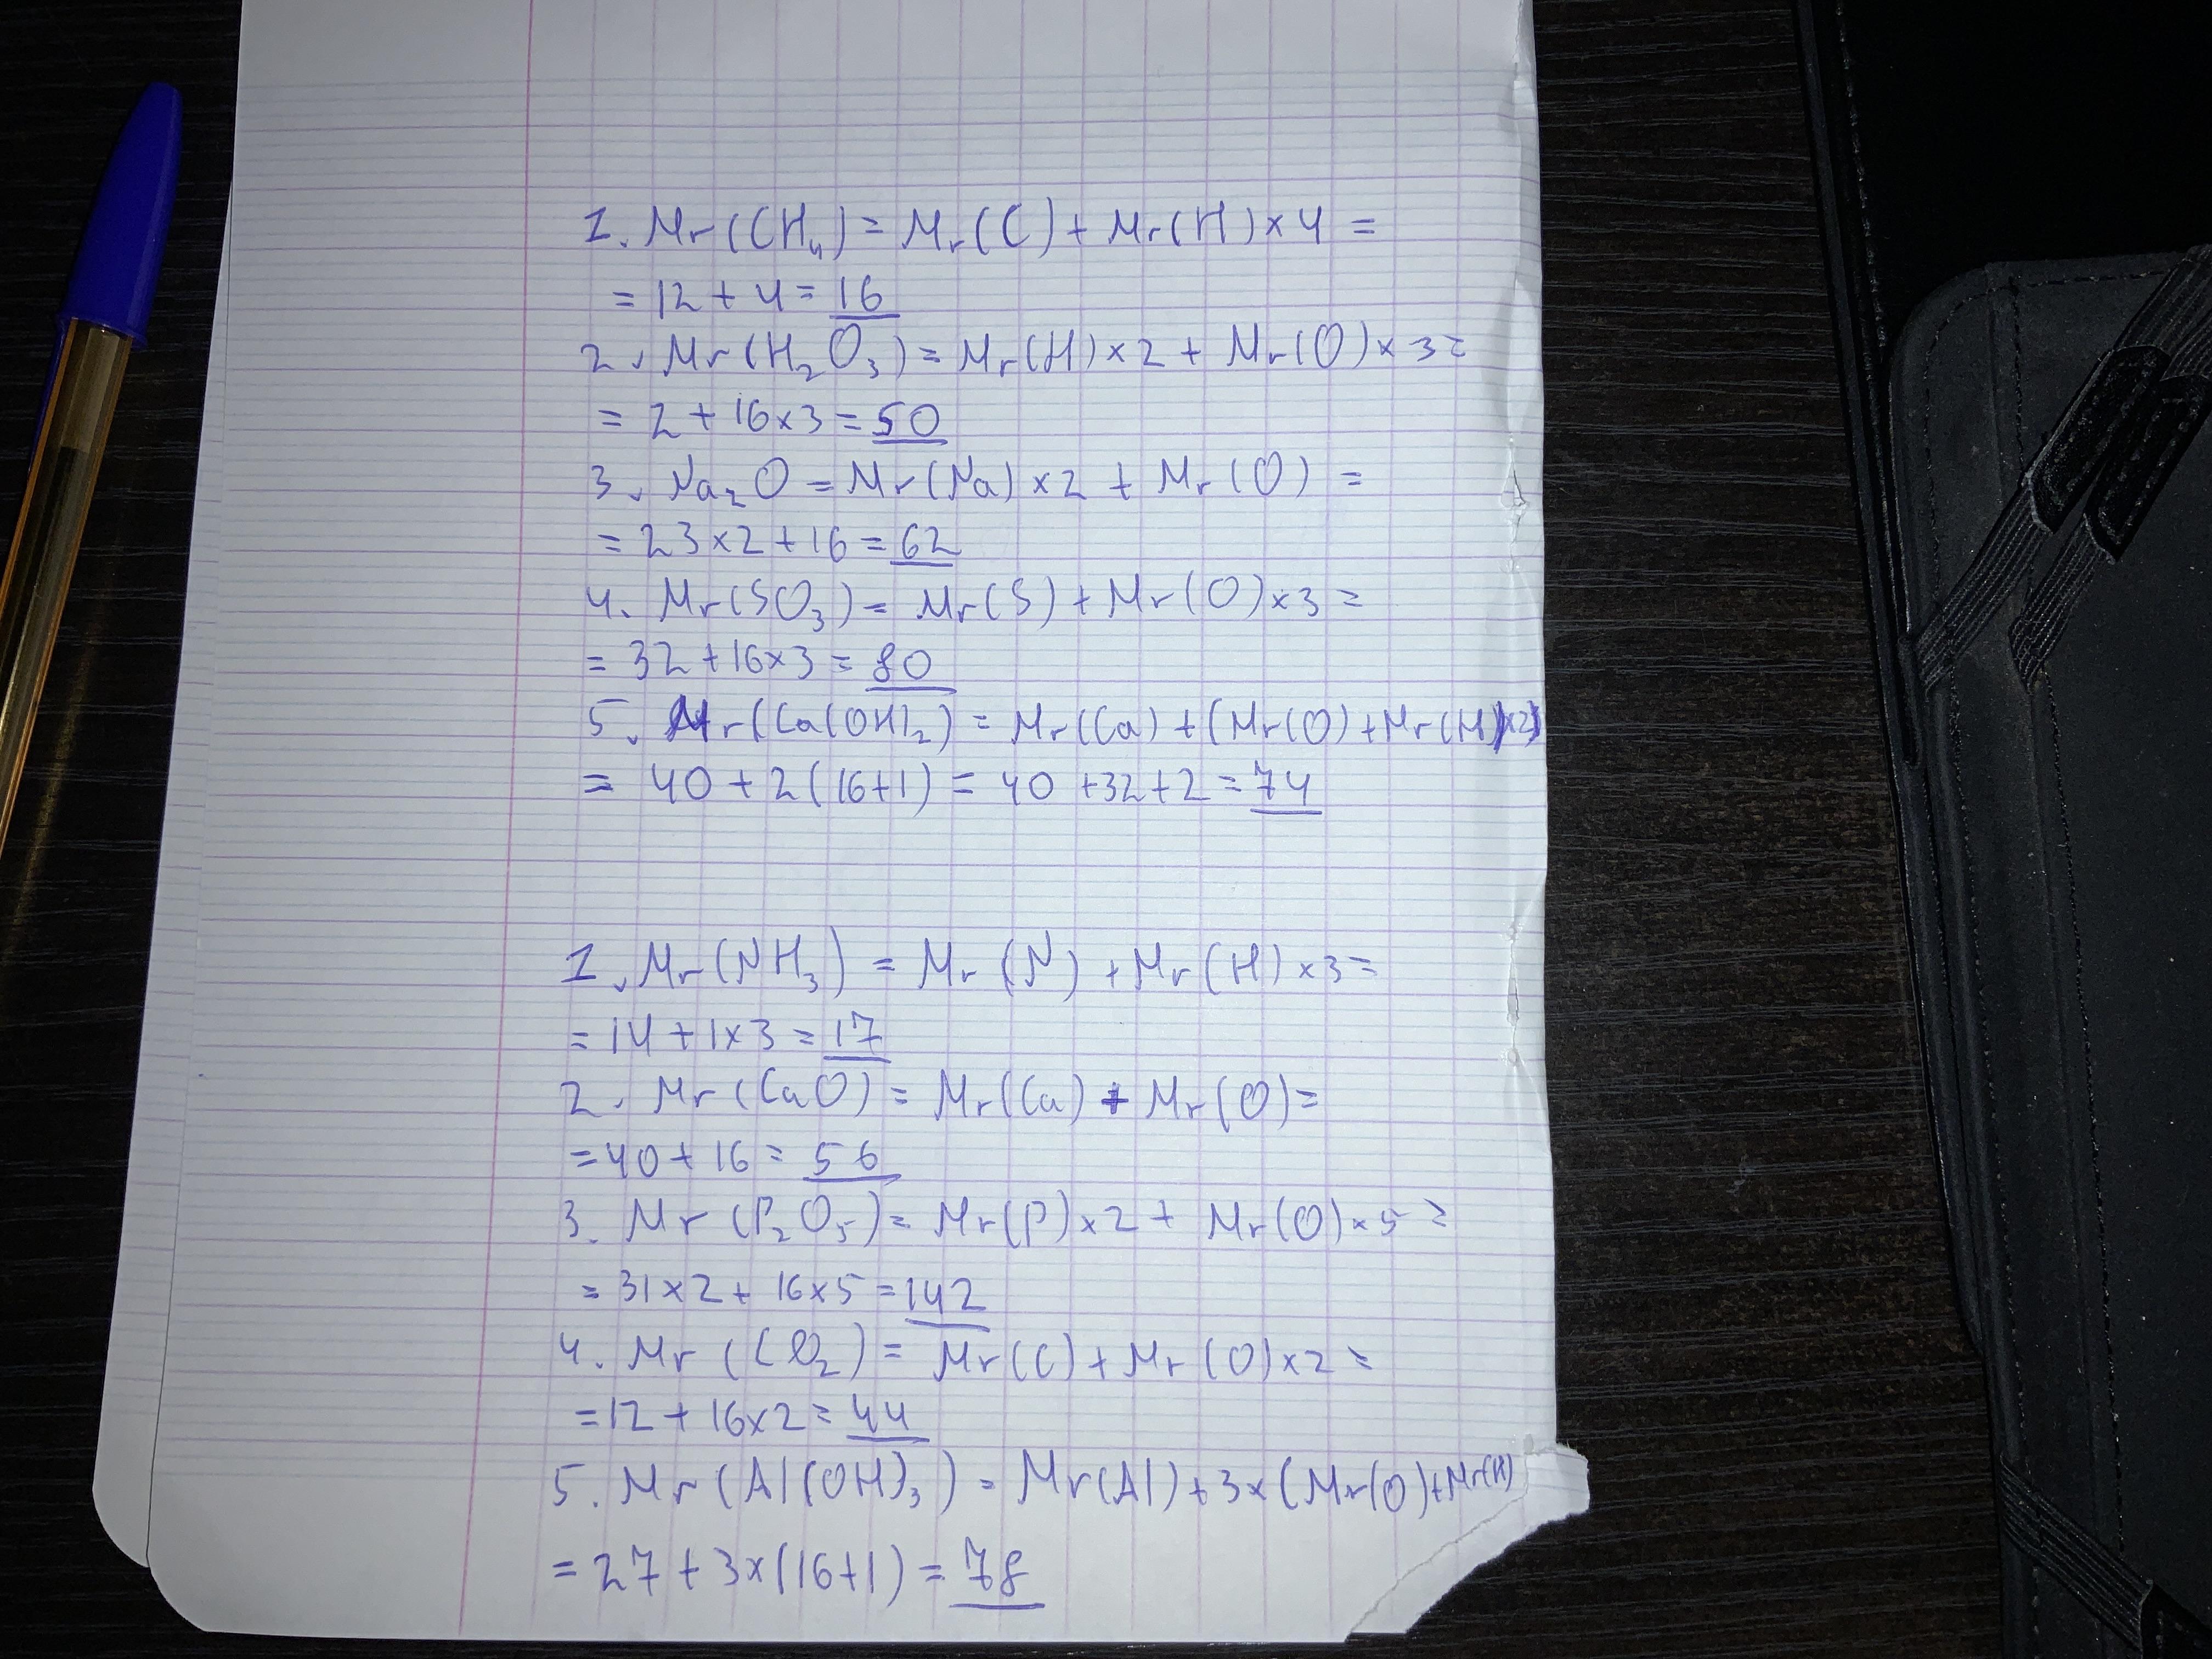 1. Mr(CH₄) = Mr(C) + Mr(H) × 4 =
= 12 + 4 = 16
2. Mr(H₂O₃) = Mr(H) × 2 + Mr(O) × 3 =
= 2 + 16 × 3 = 50
3. Na₂O = Mr(Na) × 2 + Mr(O) =
= 23 × 2 + 16 = 62
4. Mr(SO₃) = Mr(S) + Mr(O) × 3 =
= 32 + 16 × 3 = 80
5. Mr(Ca(OH)₂) = Mr(Ca) + (Mr(O) + Mr(H)) × 2)
= 40 + 2(16+1) = 40 + 32 + 2 = 74
1. Mr(NH₃) = Mr(N) + Mr(H) × 3 =
= 14 + 1 × 3 = 17
2. Mr(CaO) = Mr(Ca) + Mr(O) =
= 40 + 16 = 56
3. Mr(P₂O₅) = Mr(P) × 2 + Mr(O) × 5 =
= 31 × 2 + 16 × 5 = 142
4. Mr(CO₂) = Mr(C) + Mr(O) × 2 =
= 12 + 16 × 2 = 44
5. Mr(Al(OH)₃) = Mr(Al) + 3 × (Mr(O) + Mr(H)
= 27 + 3 × (16+1) = 78